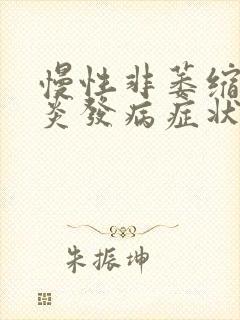 慢性非萎缩
炎發病症狀
朱振坤